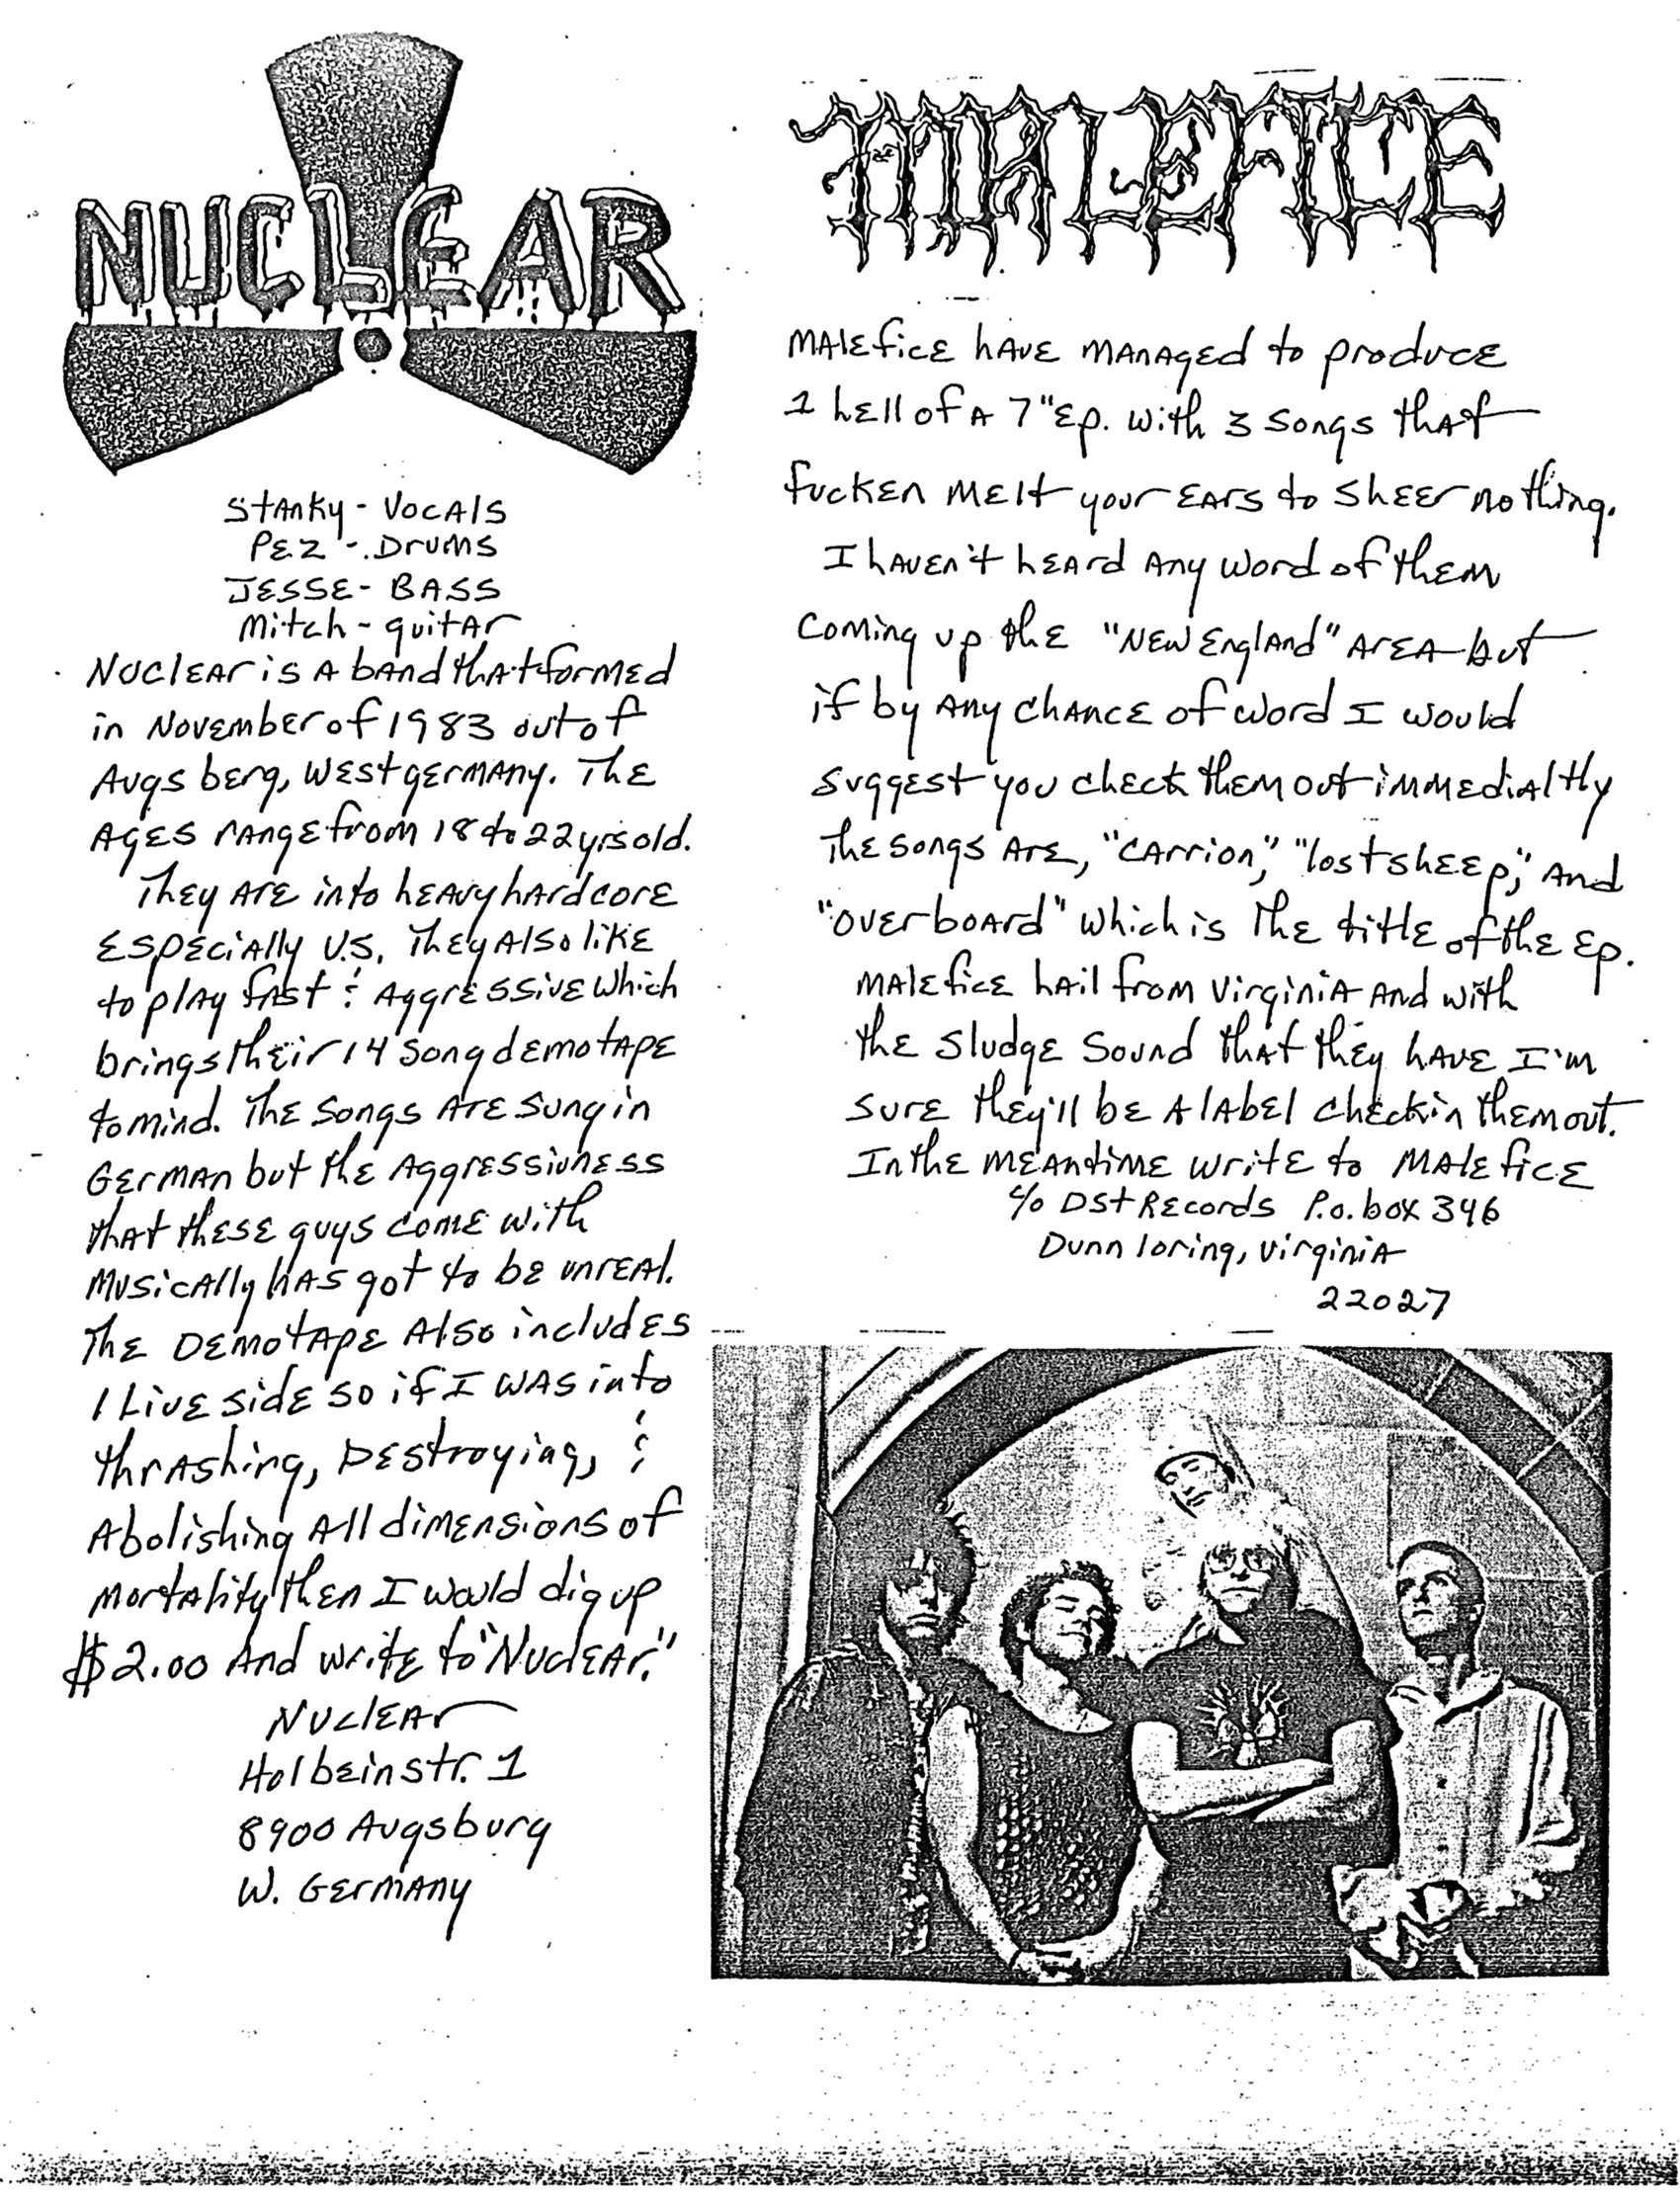 NUCLEAR
Stanky - Vocals
Pez - Drums
Jesse - Bass
Mitch - guitar
Nuclear is a band that formed
in November of 1983 out of
Augsberg, West germany. The
Ages range from 18 to 22 yrs old.
They are into heavy hardcore
especially U.S. They Also like
to play fast & Aggressive which
brings their 14 song demotape
to mind. The songs are sung in
German but the Aggressivness
that these guys come with
musically has got to be unreal.
The Demotape Also includes
1 Live side so if I was into
thrashing, Destroying, &
Abolishing All dimensions of
mortality then I would dig up
$2.00 And write to "Nuclear."
Nuclear
Holbeinstr. 1
8900 Augsburg
W. Germany
MALEFICE
Malefice have managed to produce
1 hell of a 7" Ep. with 3 songs that
fucken melt your ears to sheer nothing.
I haven't heard any word of them
coming up the "New England" area but
if by any chance of word I would
suggest you check them out immedialtly
The songs are, "Carrion," "lost sheep," and
"Overboard" which is the title of the Ep.
Malefice hail from Virginia and with
the sludge sound that they have I'm
sure they'll be a label checkin them out.
In the meantime write to Malefice
c/o Dst Records P.o. box 346
Dunn loring, Virginia
22027